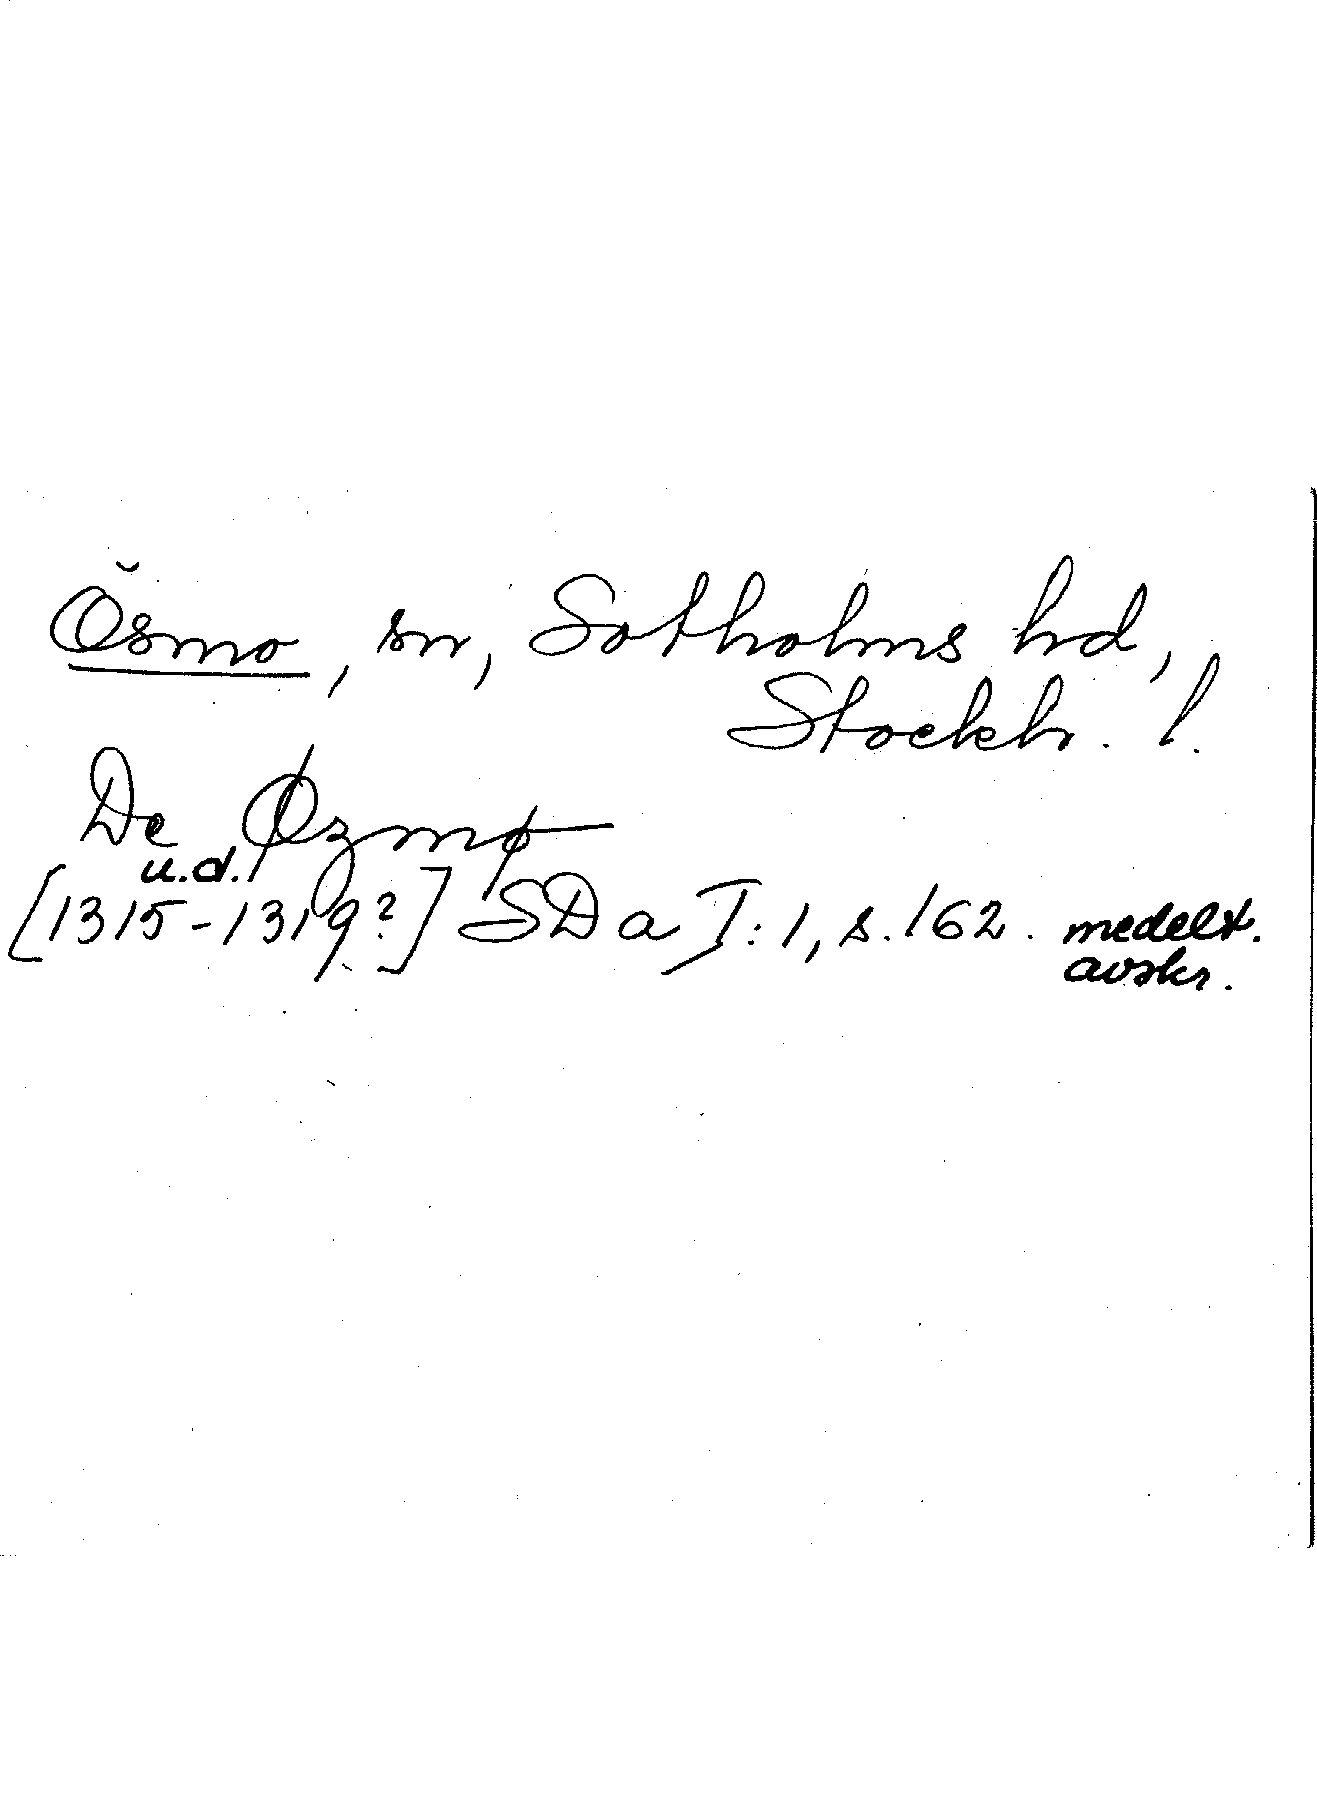 Ösmo, sn, Sotholms hd,
Stockh. l.
De Øzmø
u.d.
[1315-1319?] SDa I:1, s. 162. medelt.
avskr.